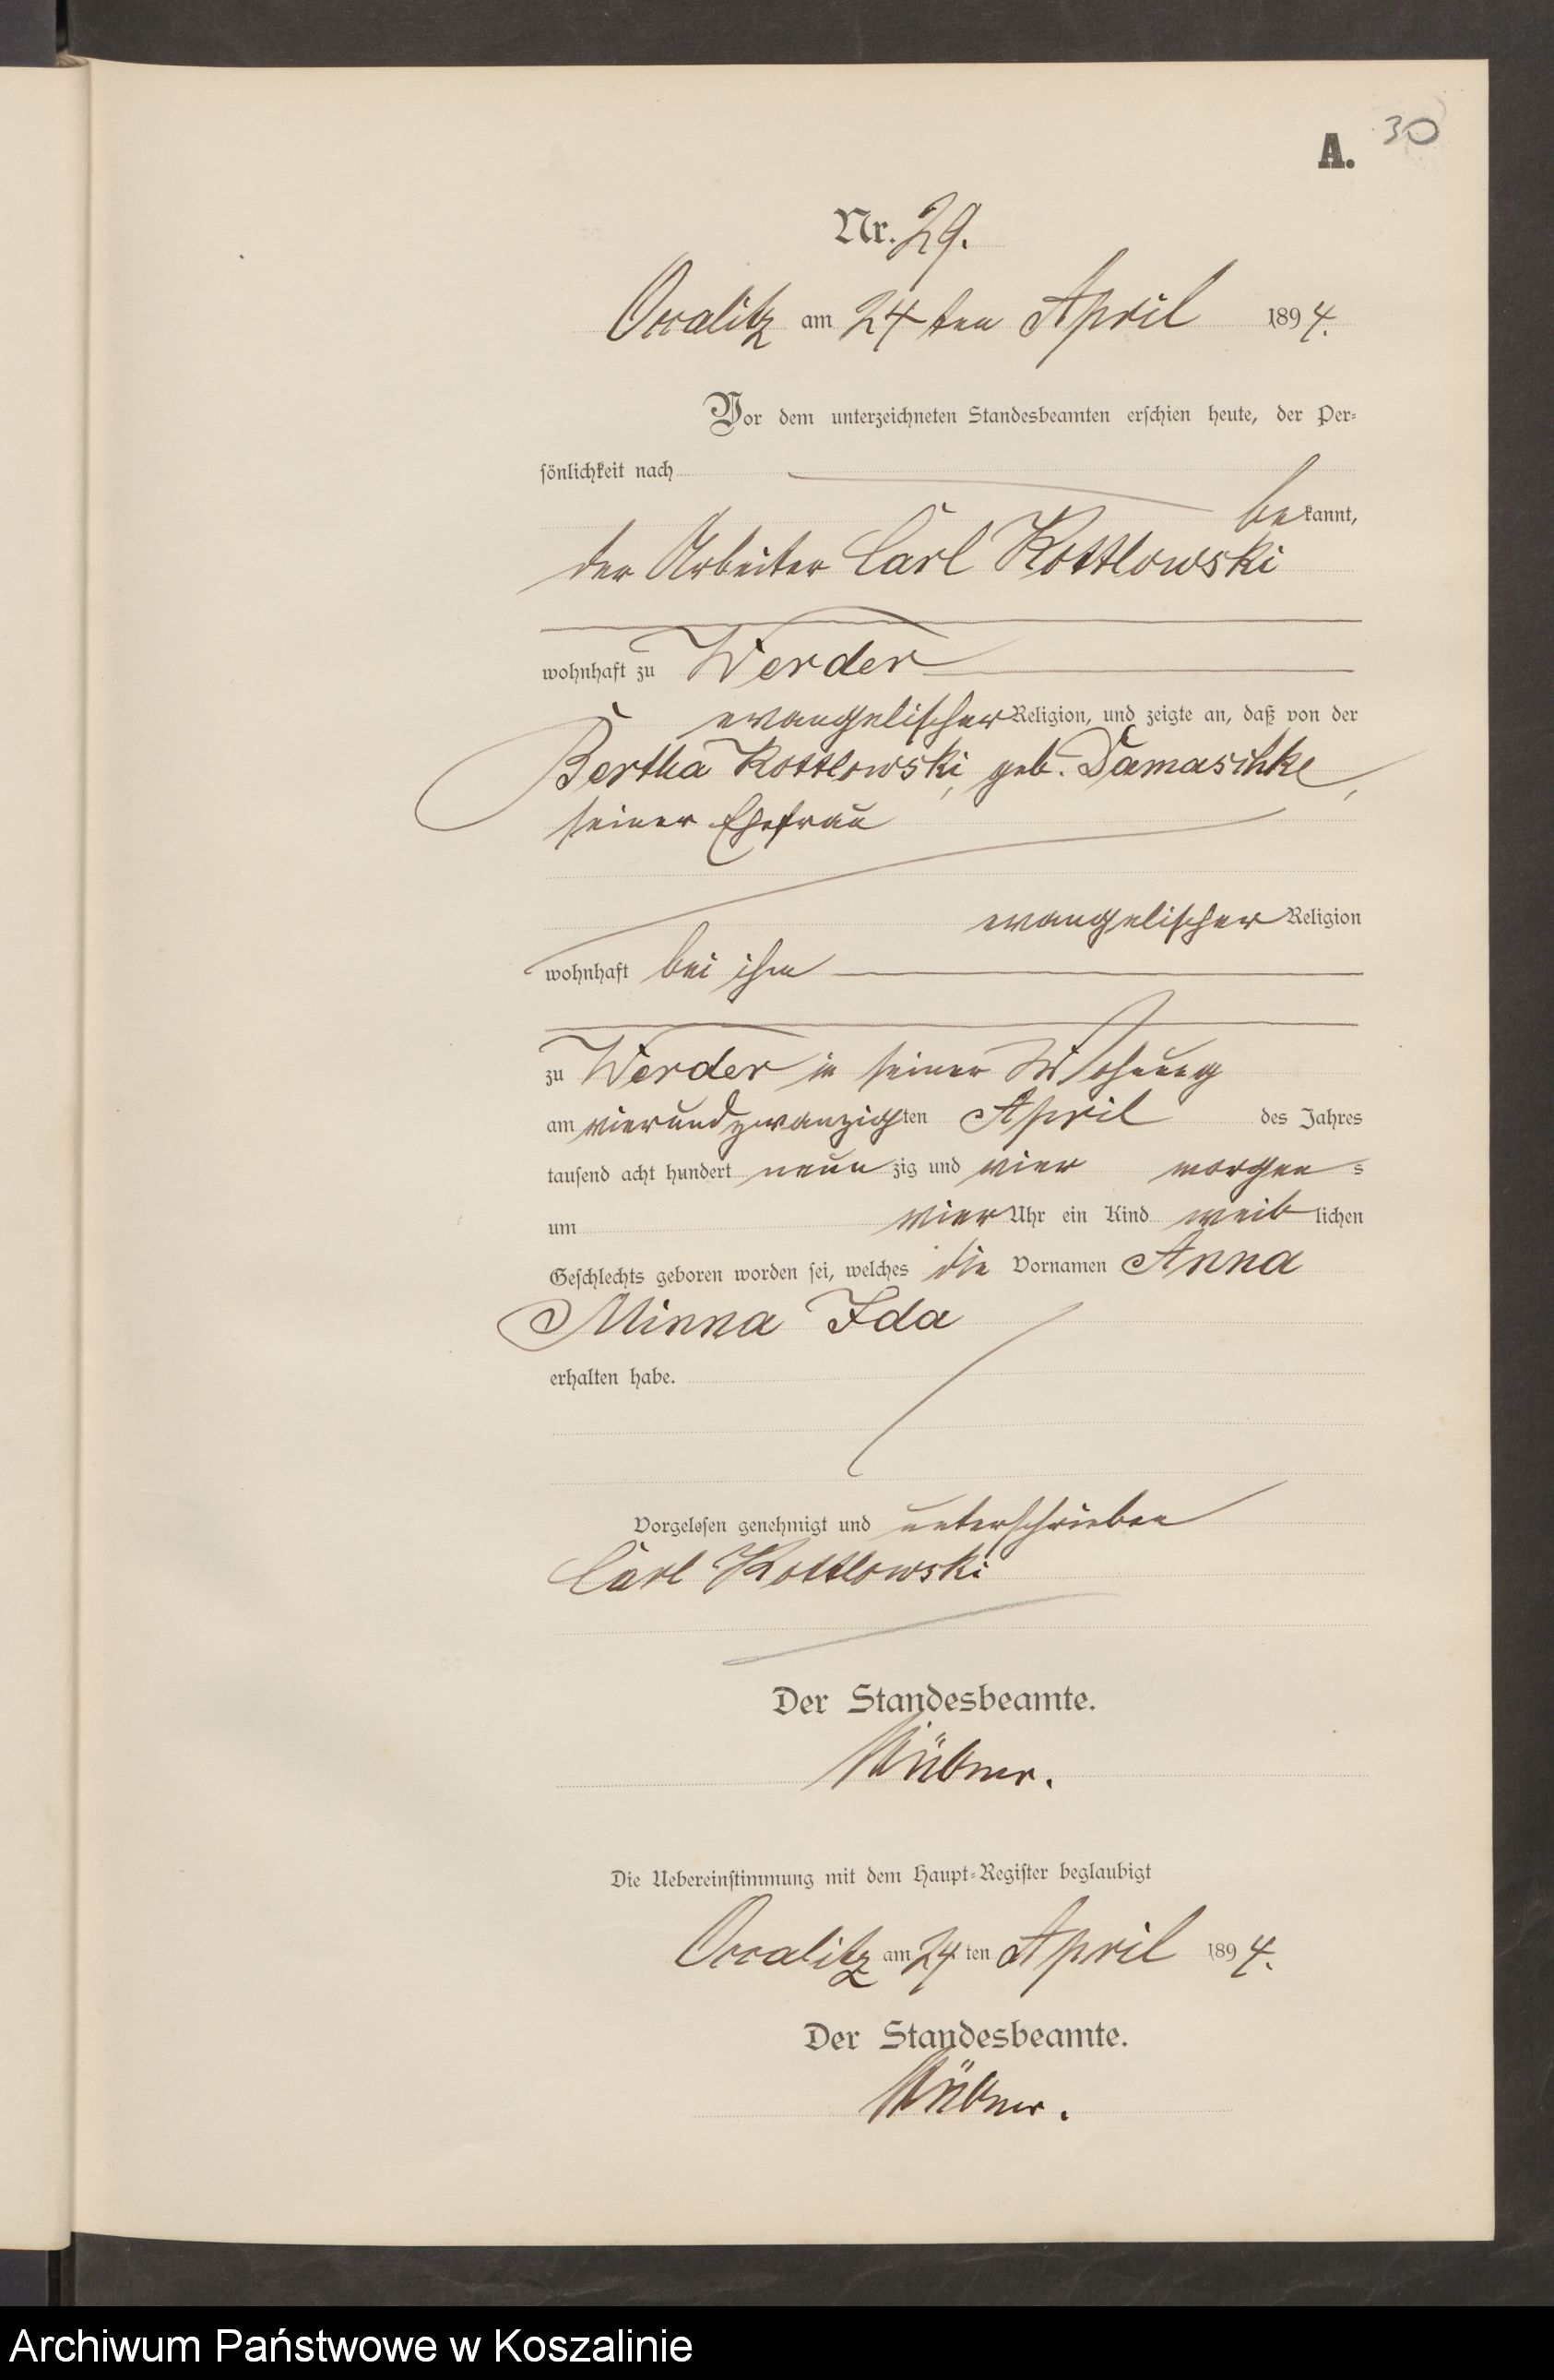 A. 30
Nr. 29.
Occalitz am 24ten April 1894.
Vor dem unterzeichneten Standesbeamten erschien heute, der Per-
sönlichkeit nach
bekannt,
der Arbeiter Carl Kottlowski
wohnhaft zu Werder
evangelischer Religion, und zeigte an, daß von der
Bertha Kottlowski, geb. Damaschke,
seiner Ehefrau
evangelischer Religion
wohnhaft bei ihm
zu Werder in seiner Wohnung
am vierundzwanzigten April des Jahres
tausend acht hundert neunzig und vier morgens
um vier Uhr ein Kind weiblichen
Geschlechts geboren worden sei, welches die Vornamen Anna
Minna Ida
erhalten habe.
Vorgelesen genehmigt und unterschrieben
Carl Kottlowski
Der Standesbeamte.
Die Uebereinstimmung mit dem Haupt-Register beglaubigt
Occalitz am 24ten April 1894.
Der Standesbeamte.
Archiwum Państwowe w Koszalinie